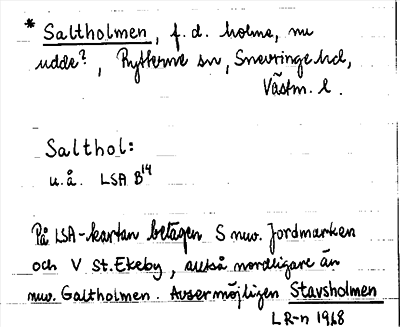 * Saltholmen, f.d. holme, nu
udde?, Rytterne sn, Snevringe hd,
Västm. l.
Salthol:
u.å. LSA B14
På LSA-kartan belägen S nuv. Jordmarken
och V St. Ekeby, alltså nordligare än
nuv. Galtholmen. Avser möjligen Stavsholmen
LR-n 1968